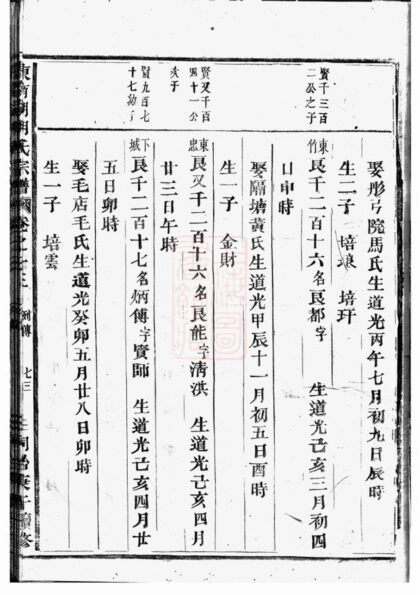 娶彤弓院馬氏生道光丙午七月初九日辰時
生二子 培琅 培玗
賢千三百
二公之子
東竹
良千二百十六名良都字 生道光己亥三月初四
日申時
娶隔塘黃氏生道光甲辰十一月初五日酉時
生一子 金財
賢又千百
四十一公
次子
東忠
良又千二百十六名良能字清洪 生道光己亥四月
廿三日午時
賢九百七
十七幼子
下城
良千二百十七名炳傅字賓師 生道光己亥四月廿
五日卯時
娶毛店毛氏生道光癸卯五月廿八日卯時
生一子 培雲
胡氏宗譜 卷之七三 列傳 七三
同治庚午續修